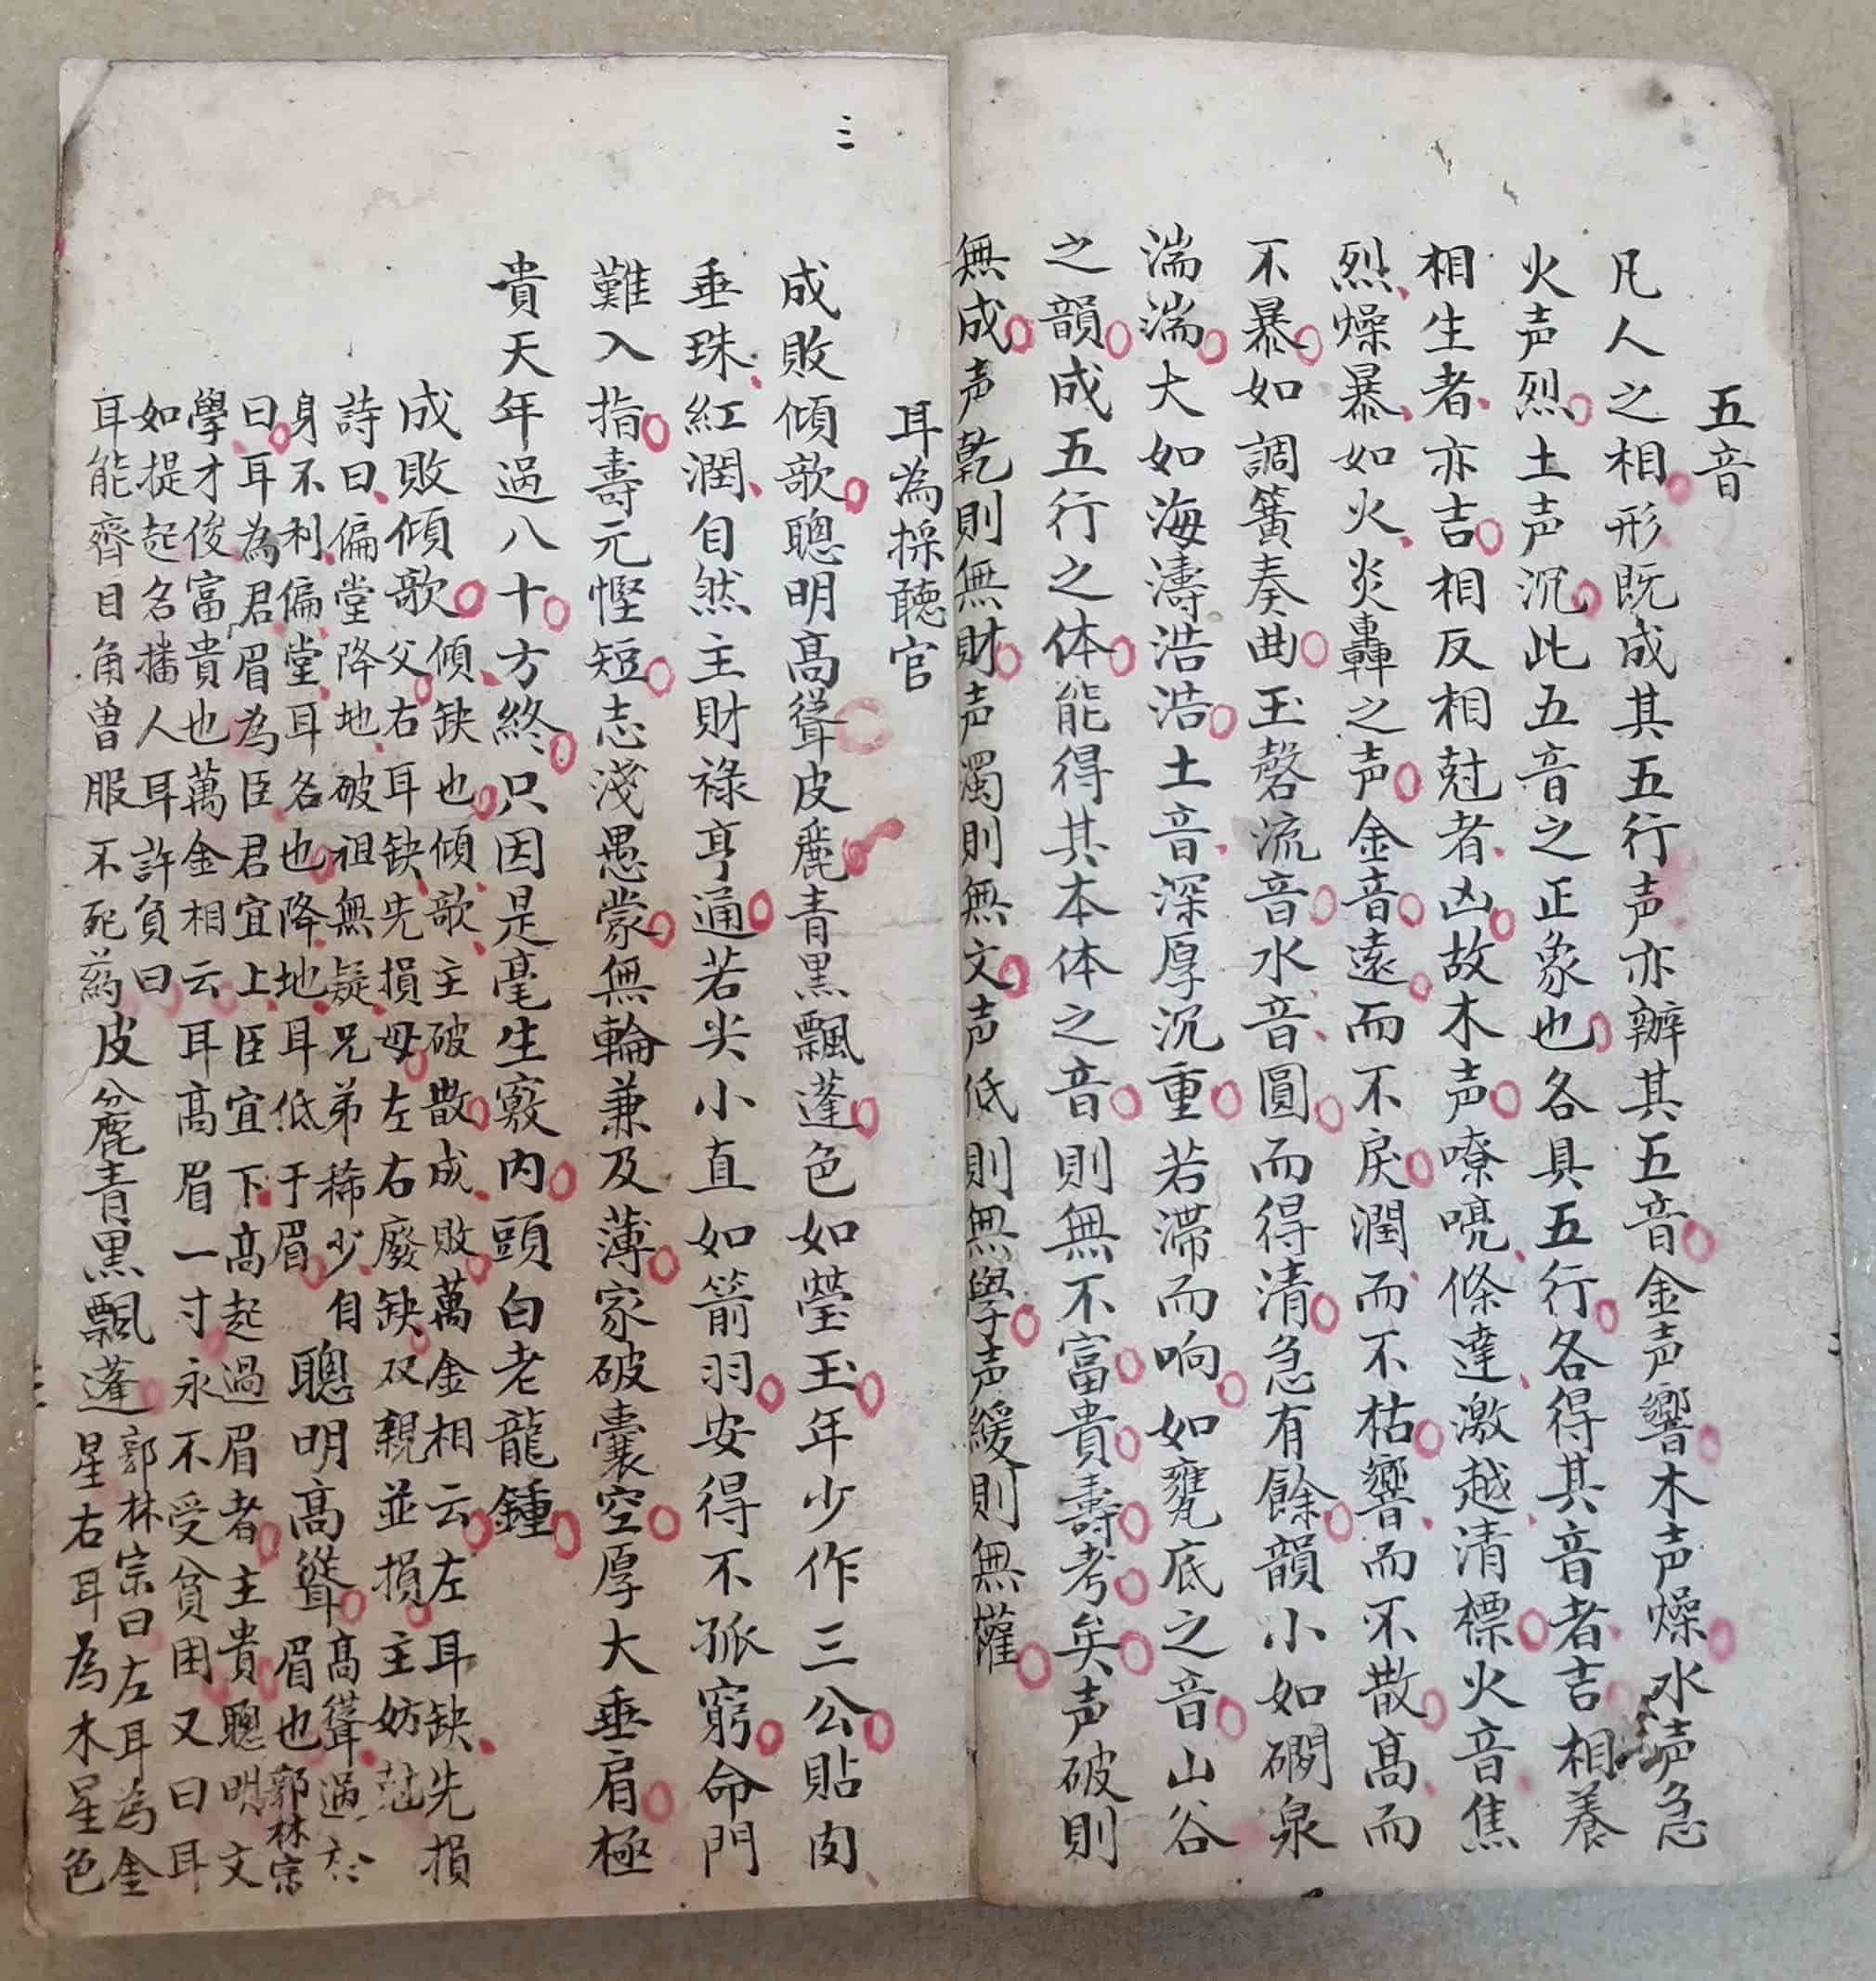 五音
凡人之相形既成其五行声亦辦其五音金声響木声燥水声急
火声烈土声沉此五音之正象也各具五行各得其音者吉相養
相生者亦吉相反相尅者凶故木声嘹喨條達激越清標火音焦
烈燥暴如火炎轟之声金音遠而不戾潤而不枯響而不散高而
不暴如調簧奏曲玉磬流音水音圓而得清急有餘韻小如磵泉
湍湍大如海濤浩浩土音深厚沉重若滞而响如甕底之音山谷
之韻成五行之体能得其本体之音則無不富貴壽考矣声破則
無成声乾則無財声濁則無文声低則無學声緩則無權
三
耳為採聽官
成敗傾欹聰明高聳皮麄青黒飄蓬色如瑩玉年少作三公貼肉
垂珠紅潤自然主財祿亨通若尖小直如箭羽安得不孤窮命門
難入指壽元慳短志淺愚蒙無輪兼及薄家破囊空厚大垂肩極
貴天年過八十方終只因是毫生竅內頭白老龍鍾
成敗傾欹傾缺也傾欹主破散成敗萬金相云左耳缺先損
父右耳缺先損母左右廢缺双親並損主妨尅
詩曰偏堂降地破祖無疑兄弟稀少自
身不利偏堂耳名也降地耳低于眉
聰明高聳高聳過於
眉也郭林宗
曰耳為君眉為臣君宜上臣宜下高起過眉者主貴聰明文
學才俊富貴也萬金相云耳高眉一寸永不受貧困又曰耳
如提起名播人耳許負曰
耳能齊日角曾服不死葯
皮麄青黒飄蓬
郭林宗曰左耳為金
星右耳為木星色